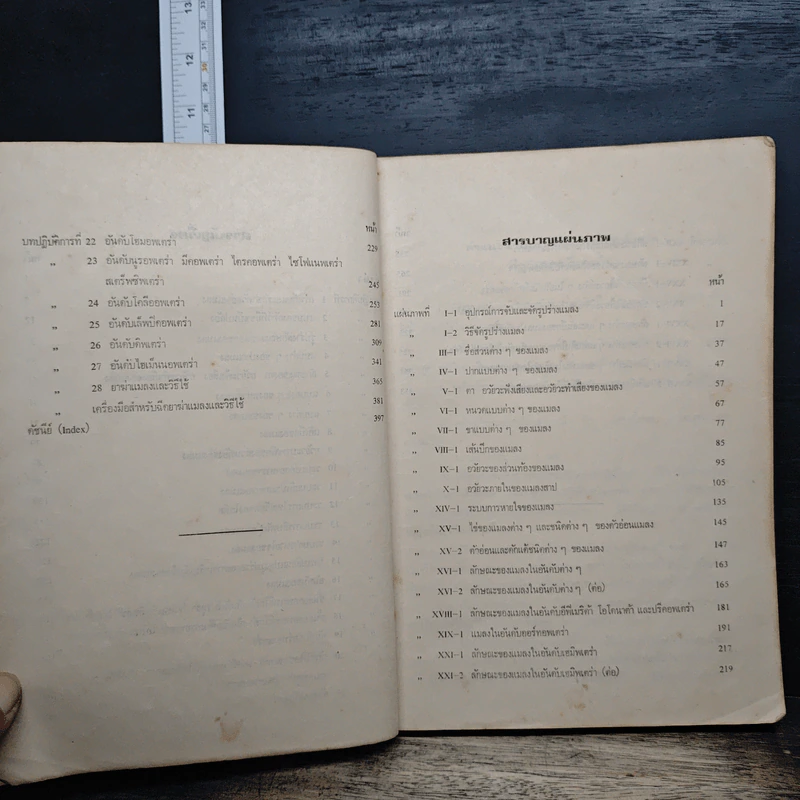 13
12
11
หน้า
บทปฏิบัติการที่ 22 อันดับโฮมอพเตร่า 229
" 23 อันดับนูรอพเตร่า มีคอพเตร่า ไตรคอพเตร่า ไซโฟแนพเตร่า
สเตร็พซิพเตร่า 245
" 24 อันดับโคลีออพเตร่า 253
" 25 อันดับเล็พบีดอพเตร่า 281
" 26 อันดับดิพเตร่า 309
" 27 อันดับไฮเม็นนอพเตร่า 341
" 28 ยาฆ่าแมลงและวิธีใช้ 365
" เครื่องมือสำหรับฉีดยาฆ่าแมลงและวิธีใช้ 381
ดัชนีย์ (Index) 397
สารบาญแผ่นภาพ
หน้า
แผ่นภาพที่ I-1 อุปกรณ์การจับและจัดรูปร่างแมลง 1
" I-2 วิธีจัดรูปร่างแมลง 17
" III-1 ชื่อส่วนต่าง ๆ ของแมลง 37
" IV-1 ปากแบบต่าง ๆ ของแมลง 47
" V-1 ตา อวัยวะฟังเสียงและอวัยวะทำเสียงของแมลง 57
" VI-1 หนวดแบบต่าง ๆ ของแมลง 67
" VII-1 ขาแบบต่าง ๆ ของแมลง 77
" VIII-1 เส้นปีกของแมลง 85
" IX-1 อวัยวะของส่วนท้องของแมลง 95
" X-1 อวัยวะภายในของแมลงสาป 105
" XIV-1 ระบบการหายใจของแมลง 135
" XV-1 ไข่ของแมลงต่าง ๆ และชนิดต่าง ๆ ของตัวอ่อนแมลง 145
" XV-2 ตัวอ่อนและดักแด้ชนิดต่าง ๆ ของแมลง 147
" XVI-1 ลักษณะของแมลงในอันดับต่าง ๆ 163
" XVI-2 ลักษณะของแมลงในอันดับต่าง ๆ (ต่อ) 165
" XVIII-1 ลักษณะของแมลงในอันดับอีฟีเมริด้า โอโดนาต้า และปรีคอพเตร่า 181
" XIX-1 แมลงในอันดับออร์ทอพเตร่า 191
" XXI-1 ลักษณะของแมลงในอันดับเฮมิพเตร่า 217
" XXI-2 ลักษณะของแมลงในอันดับเฮมิพเตร่า (ต่อ) 219